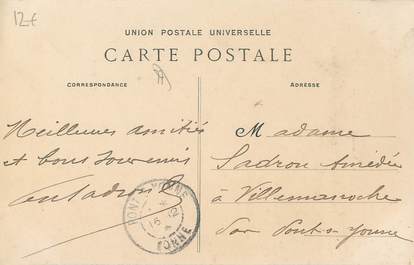 12€
UNION POSTALE UNIVERSELLE
CARTE POSTALE
CORRESPONDANCE
ADRESSE
Meilleures amitiés
et bons souvenirs
M adame
Sadron Amédée
à Villemanoche
Par Pont-s-Yonne
PONT-S-YONNE
16 12
YONNE